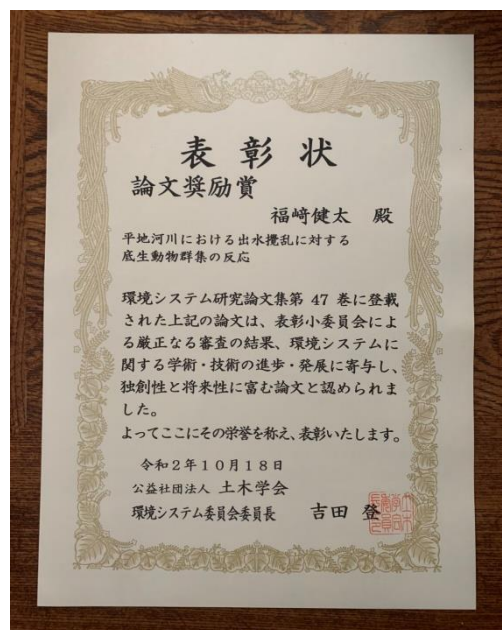 表彰状
論文奨励賞
福﨑健太 殿
平地河川における出水攪乱に対する
底生動物群集の反応
環境システム研究論文集第 47 巻に登載
された上記の論文は、表彰小委員会によ
る厳正なる審査の結果、環境システムに
関する学術・技術の進歩・発展に寄与し、
独創性と将来性に富む論文と認められま
した。
よってここにその栄誉を称え、表彰いたします。
令和２年１０月１８日
公益社団法人 土木学会
環境システム委員会委員長 吉田 登